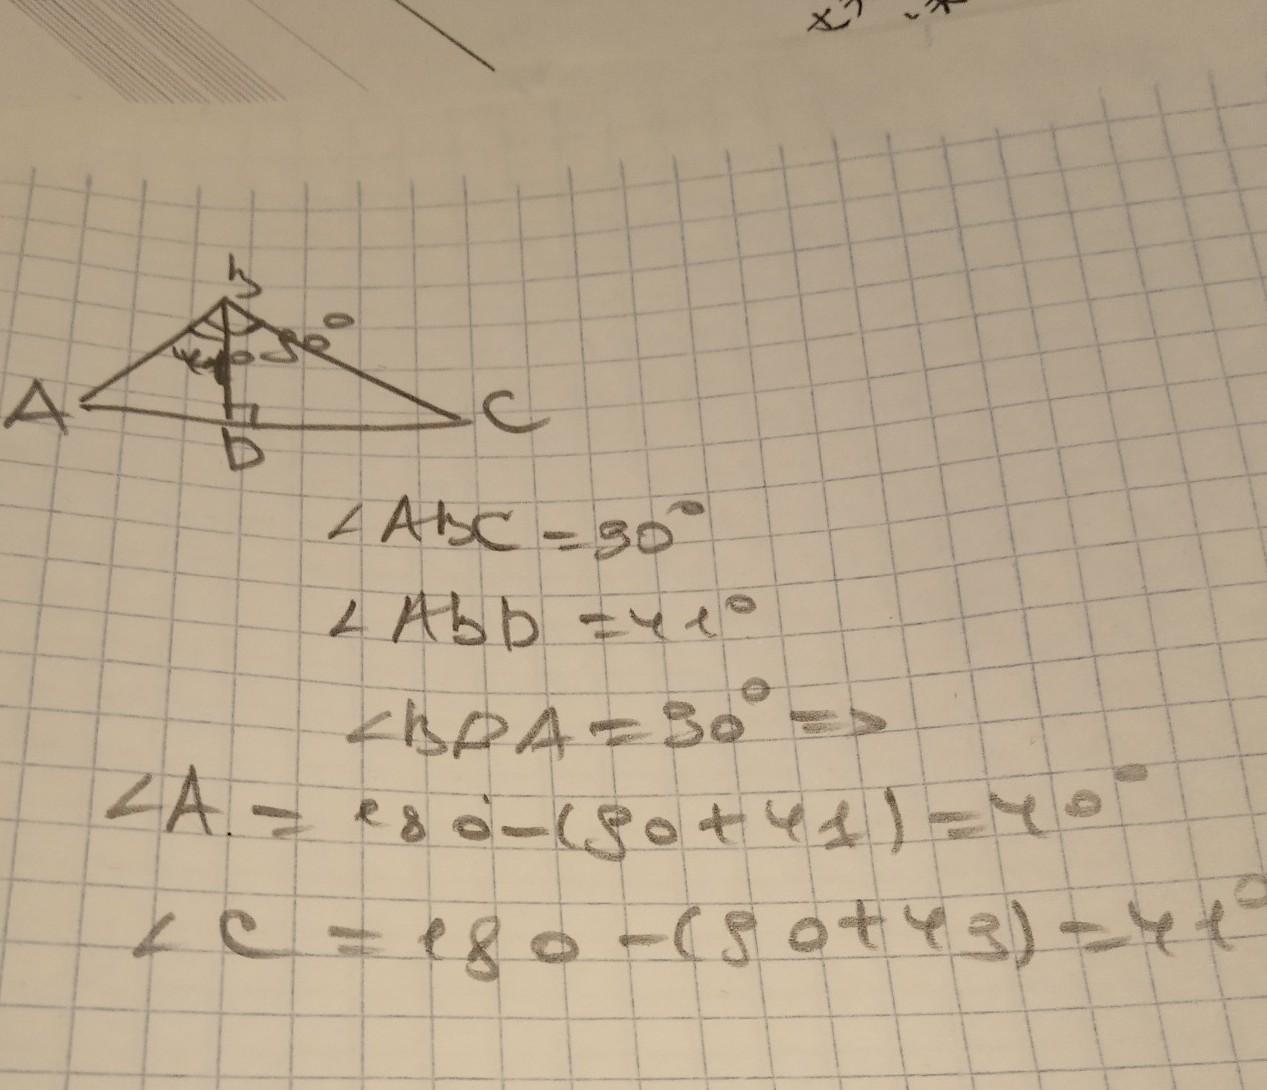 B
90°
41°
A
C
D
∠ABC = 90°
∠ABD = 41°
∠BDA = 90° =>
∠A = 180° - (90 + 41) = 40°
∠C = 180 - (90 + 49) = 41°